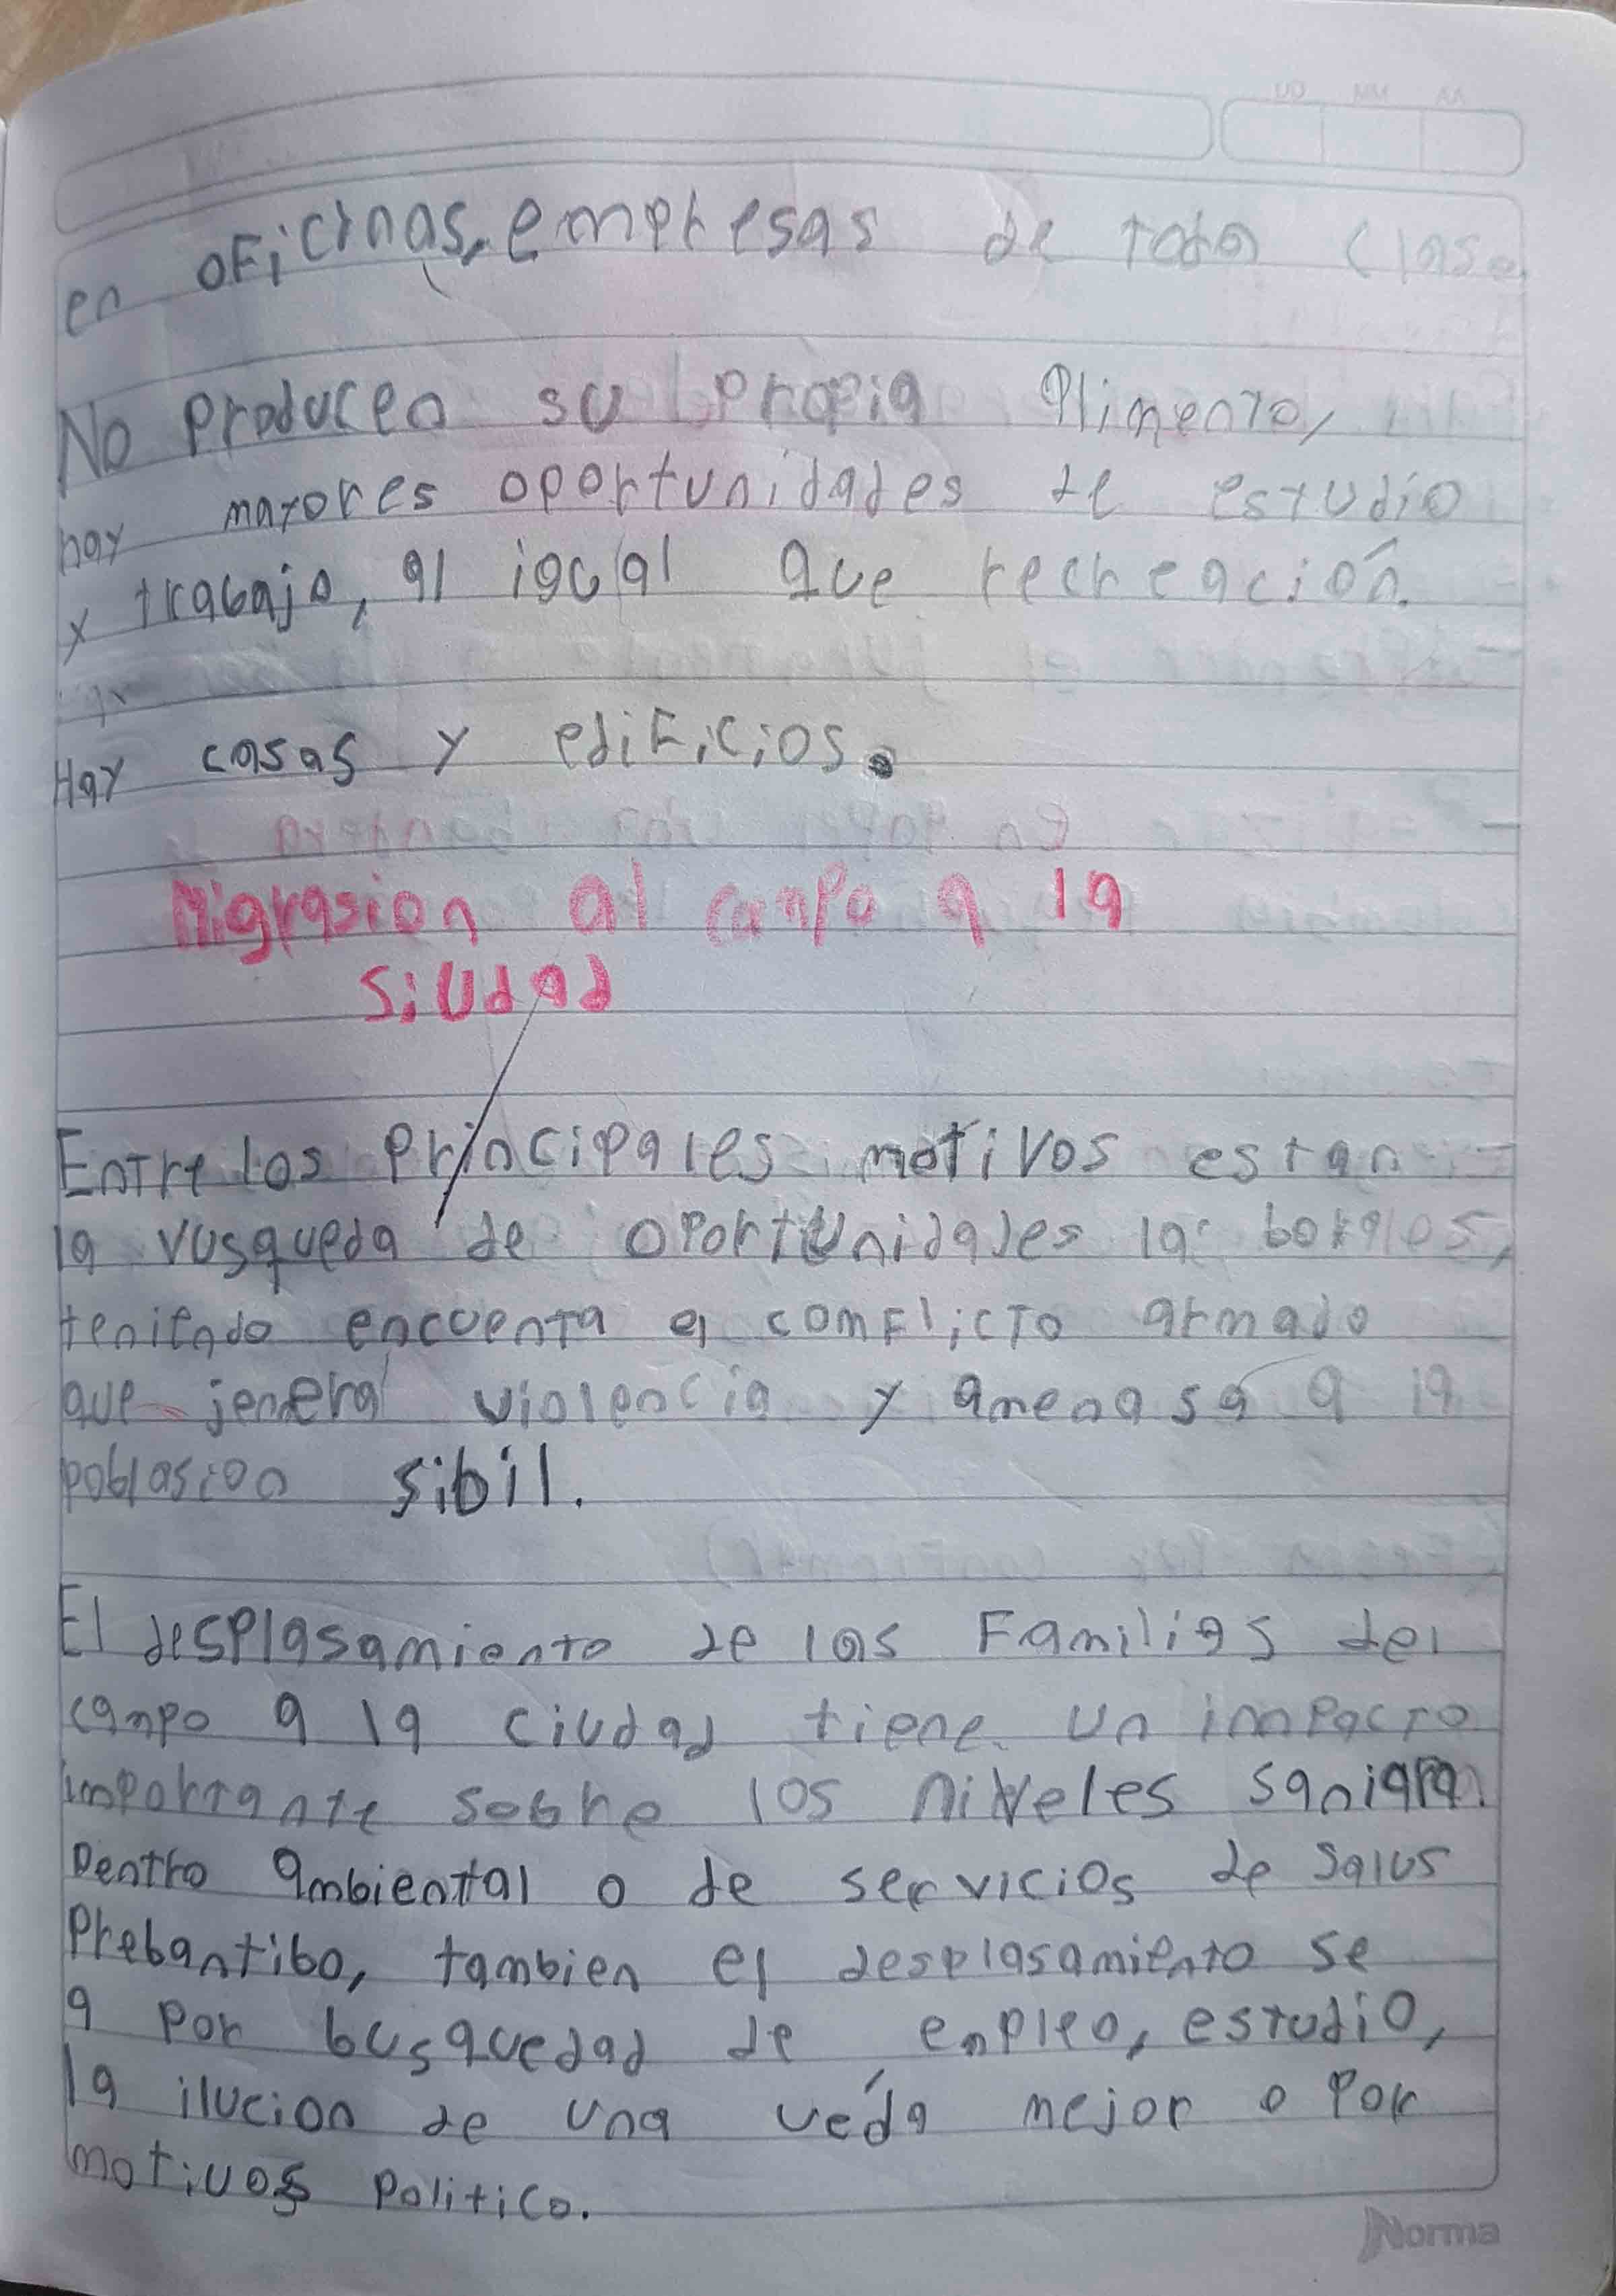 DD MM AA
en oficinas, empresas de toda clase.
No producen su propia Alimento,
hay mayores oportunidades de estudio
y trabajo, al igual que recreación.
Hay casas y edificios.
Migrasion al canpo a la
siudad
Entre los principales motivos estan
la vusqueda de oportunidades la borales,
teniendo encuenta el comflicto armado
que jenera violencia y amenasa a la
poblasion sibil.
El desplasamiento de las Familias del
canpo a la ciudad tiene un impacto
importante sobre los niveles
Dentro Ambiental o de servicios de salus
Prebantibo, tambien el desplasamiento se
a por busquedad de enpleo, estudio,
la ilucion de una veda mejor o por
motivos politico.
Norma